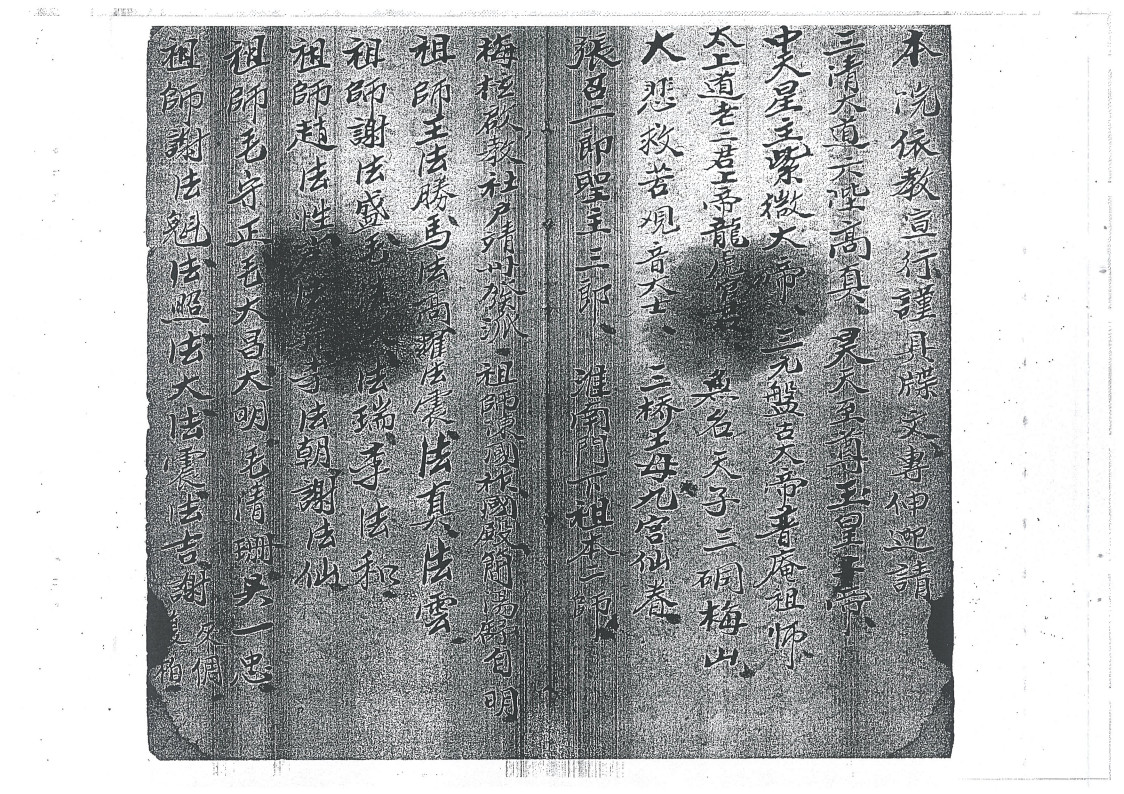 本院依教宣行謹具牒文專伸迎請
三清大道六陛高真、昊天至尊玉皇上帝、
中天星主紫微大帝、三元盤古大帝普庵祖師、
太上道老二君上帝龍虎 無名天子三硐梅山、
大悲救苦观音大士、二桥王母九宫仙眷、
張召二郎聖主三郎、淮南門下祖本二師、
梅橙啟教社户靖州發派、祖師 國 國殿簡湯 自明
祖師王法勝馬法高羅法震法真、法雲、
祖師謝法盛毛 法瑞、李法和、
祖師趙法性 李法朝謝法仙、
祖師毛守正毛大昌大明、毛清珊吳一忠、
祖師謝法魁、法照、法大、法震、法吉、謝